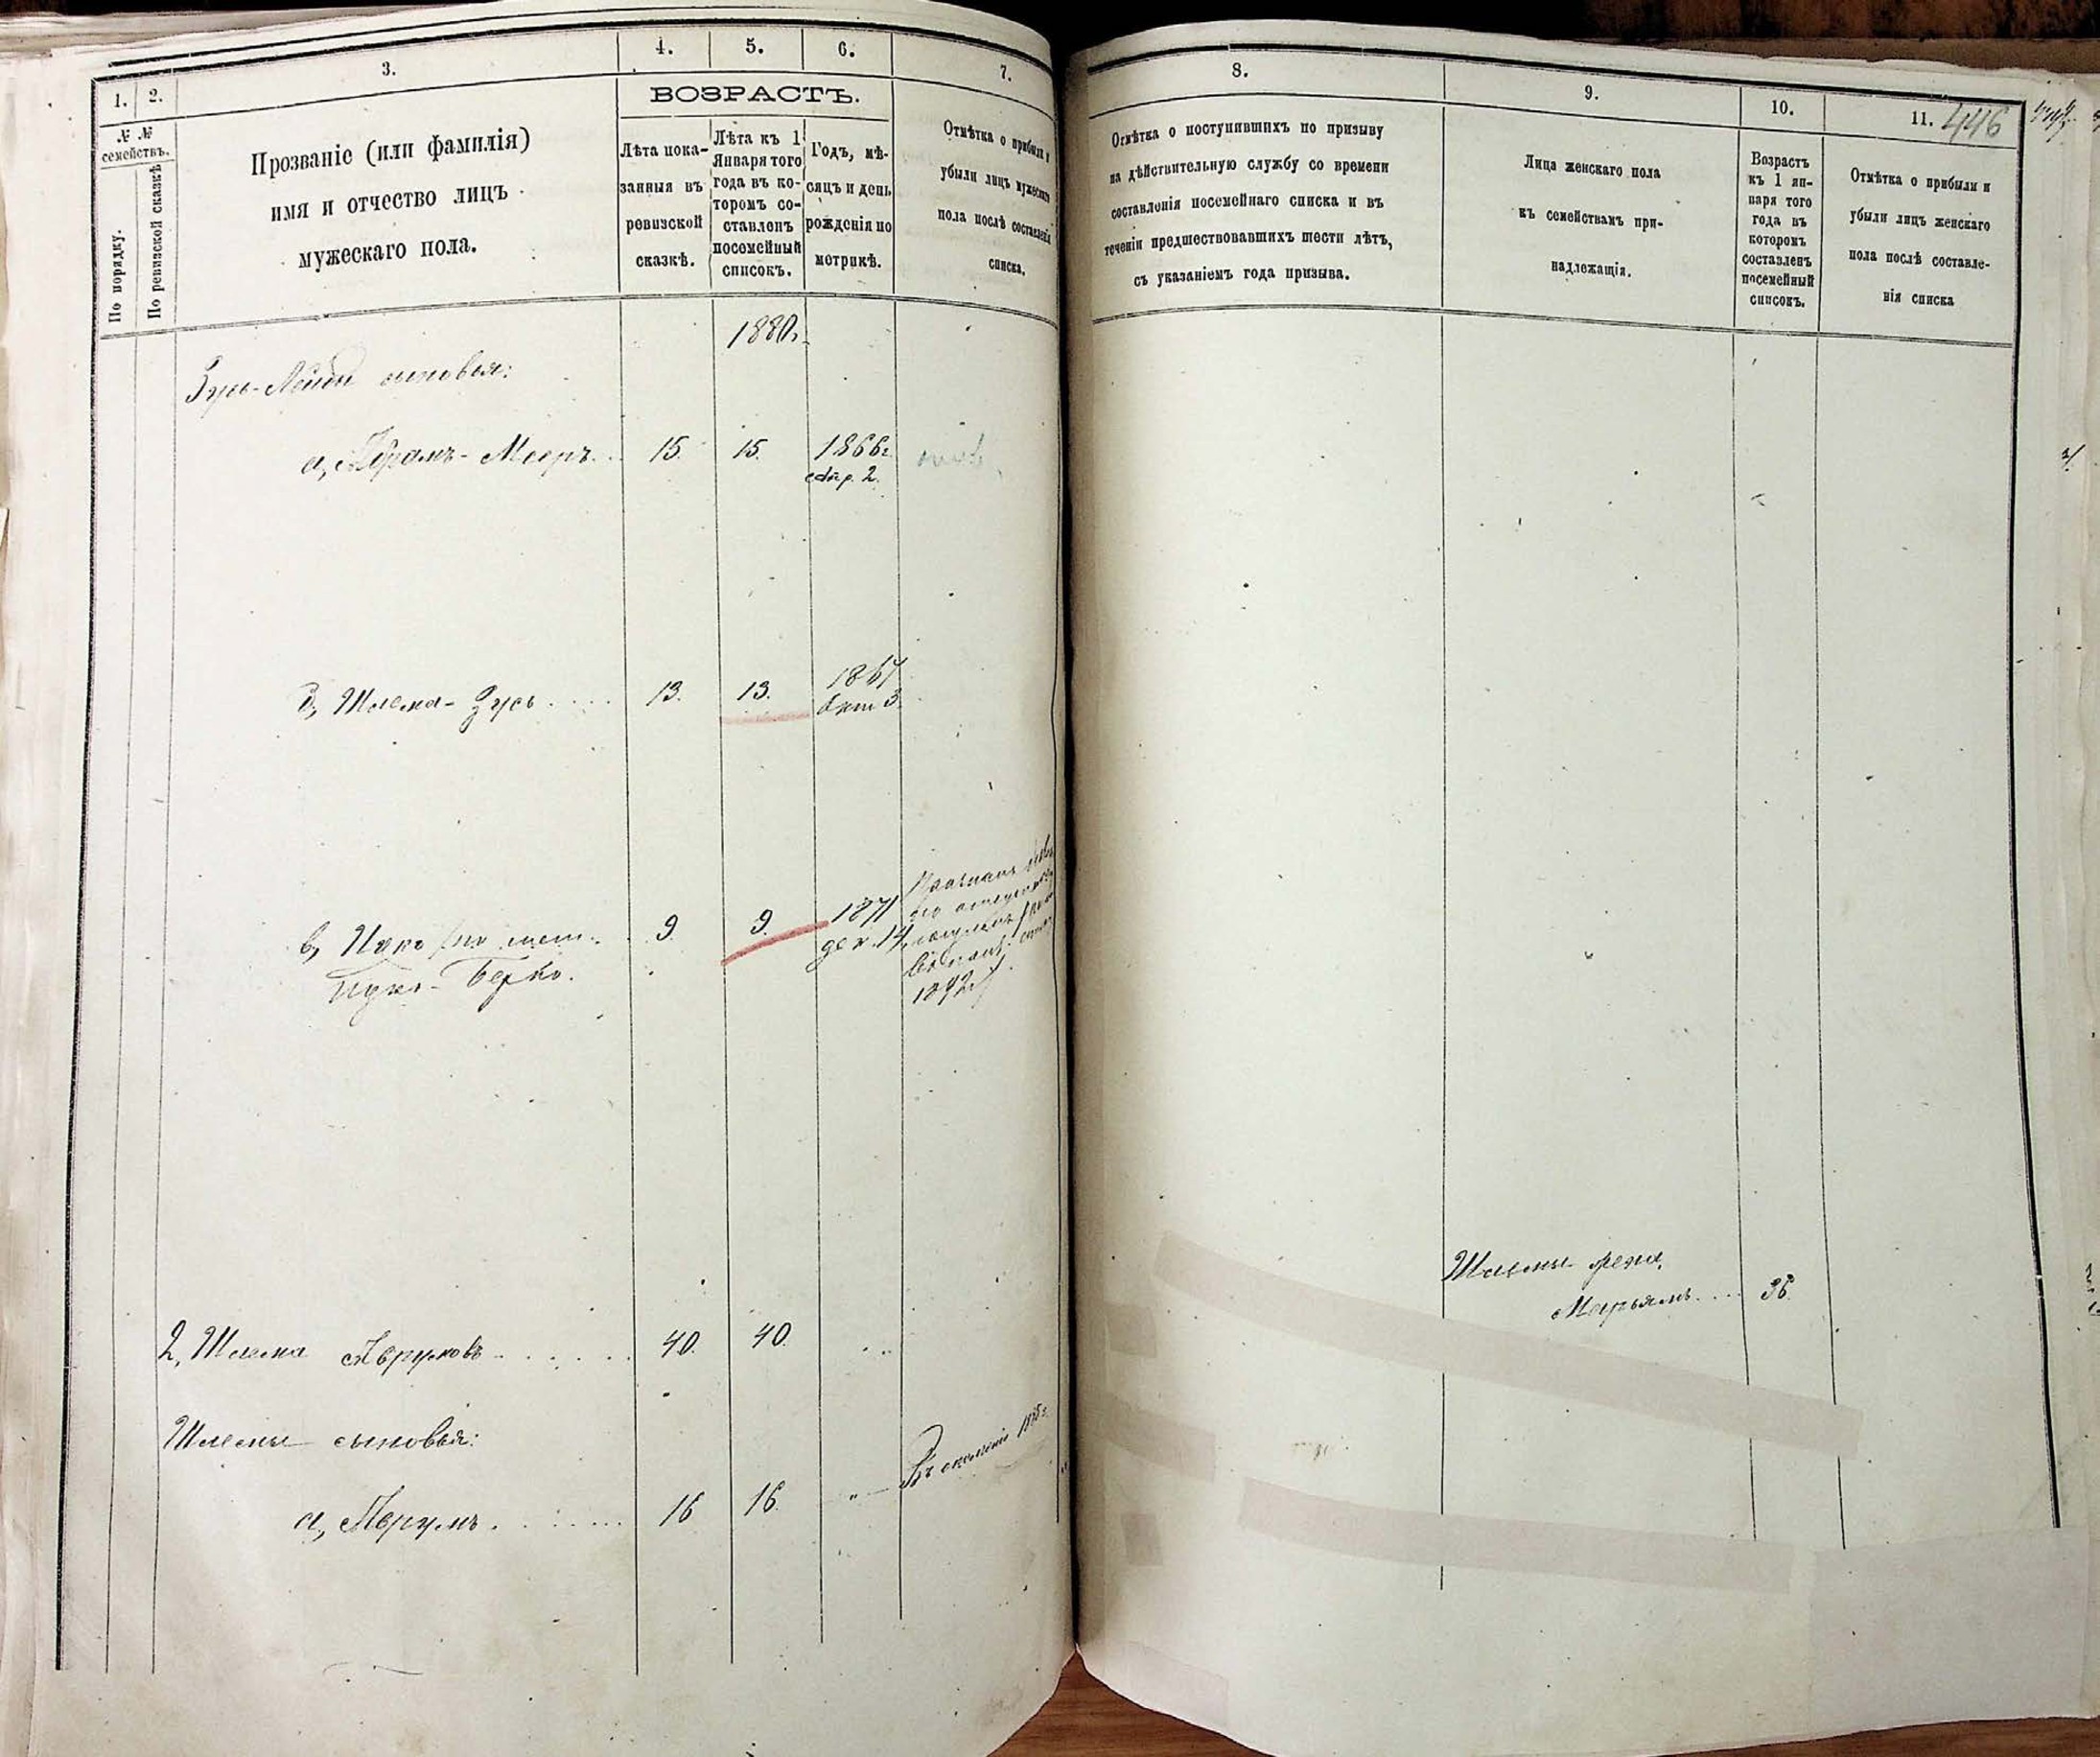 1.
2.
3.
4.
5.
6.
7.
№ №
семействъ.
По порядку.
По ревизской сказкѣ
Прозваніе (или фамилія)
имя и отчество лицъ
мужескаго пола.
ВОЗРАСТЪ.
Лѣта пока-
занныя въ
ревизской
сказкѣ.
Лѣта къ 1
Января того
года въ ко-
торомъ со-
ставленъ
посемейный
списокъ.
Годъ, мѣ-
сяцъ и день
рожденія по
метрикѣ.
Отмѣтка о прибыли и
убыли лицъ мужескаго
пола послѣ составленія
списка.
1880 г.
сыновья:
а, Абрамъ-Мееръ
15.
15.
1866 г.
апр. 2.
б, Шлема-Зусь
13.
13.
1867
Окт 3.
в, Ицко (по мет.
Ицко-Берко.
9.
9.
1871
дек. 14
1892
2, Шлема Аврумовъ
40.
40.
Шлемы сыновья:
а, Аврумъ
16
16.
8.
9.
10.
11.
446
Отмѣтка о поступившихъ по призыву
на дѣйствительную службу со времени
составленія посемейнаго списка и въ
теченіи предшествовавшихъ шести лѣтъ,
съ указаніемъ года призыва.
Лица женскаго пола
къ семействамъ при-
надлежащія.
Возрастъ
къ 1 ян-
варя того
года въ
которомъ
составленъ
посемейный
списокъ.
Отмѣтка о прибыли и
убыли лицъ женскаго
пола послѣ составле-
нія списка
Шлемы жена,
Марьямъ